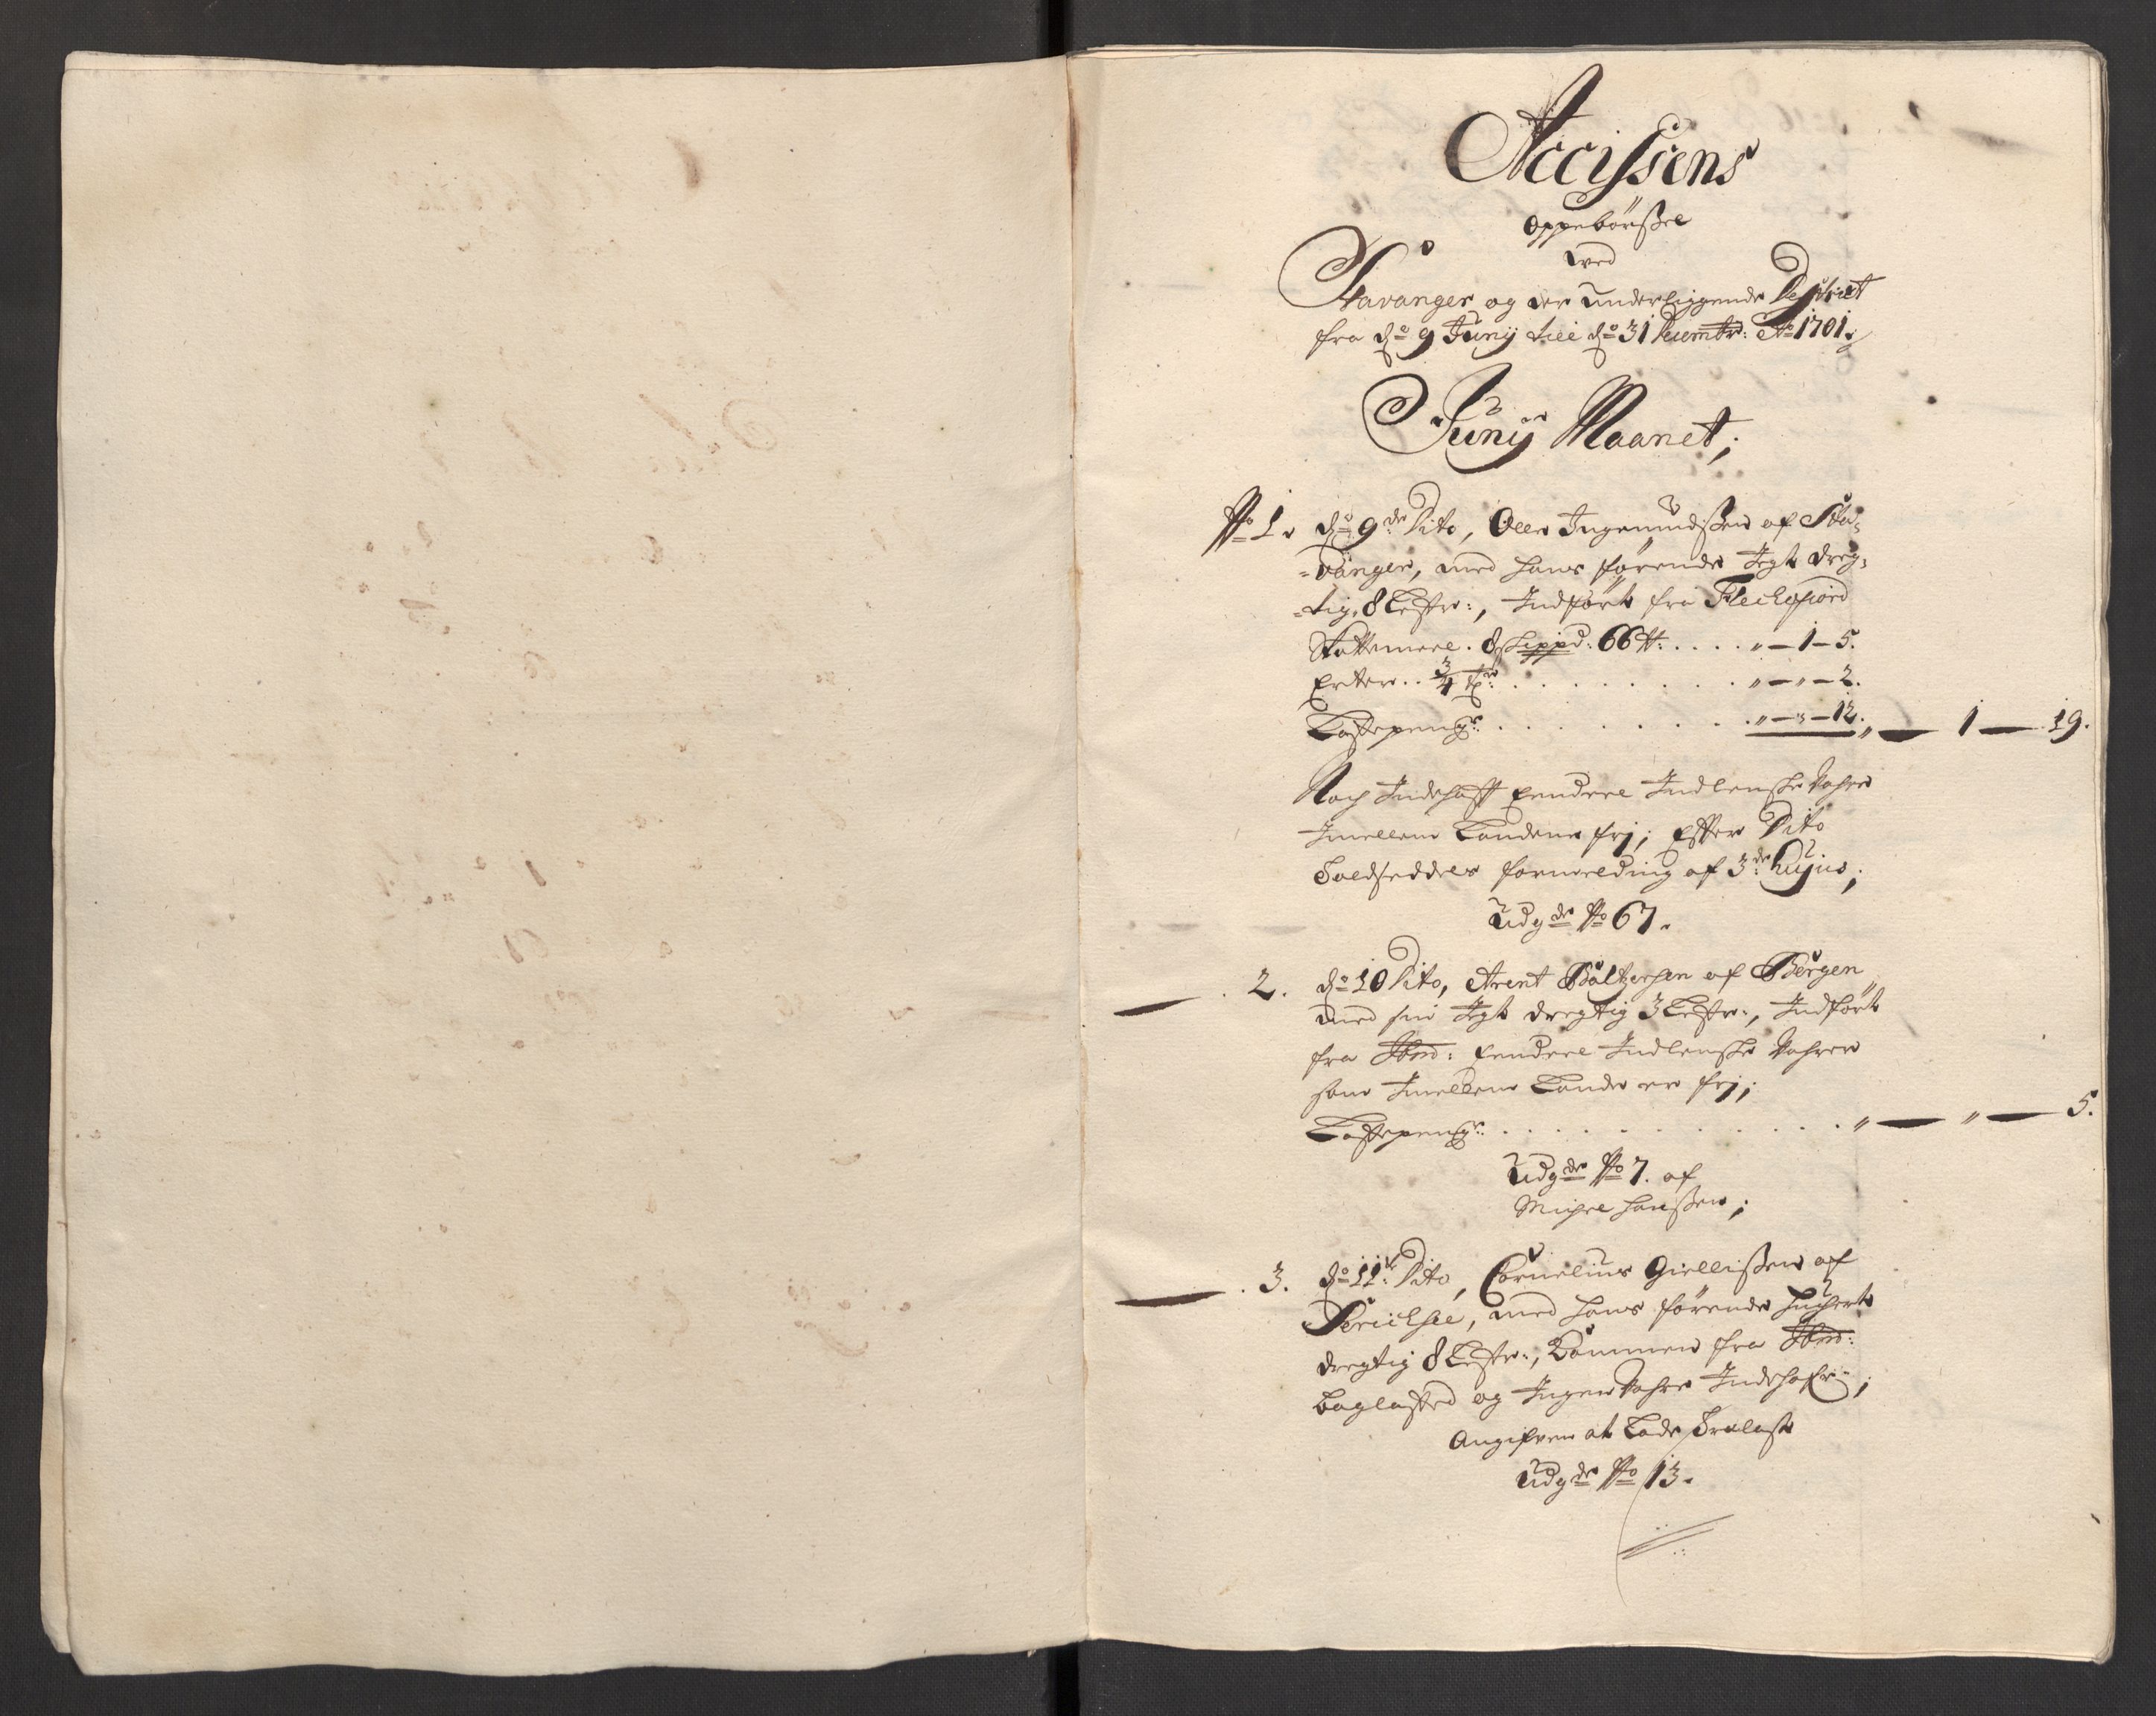 Accissens
Oppebörßel
ved
Stavanger og der underliggende Destrict
fra dº 9 Junij till dº 31 Decembr: Aº 1701.
Junij Maanet;
Nº 1. dº 9de Dito, Olle Ingemundßen af Sta-
-vanger, med hans förende Jegt dreg-
-tig 8 Lester:, Indfört fra Flechefiord
8 Skippd: 66 ℔: . . . . „ — 1 — 5.
Erter . . 3/4 tr: . . . . . . . . „ — „ — 2.
Lastepenge: . . . . . . . „ — „ — 12. „ — 1 — 19.
Noch Indehafft Endeel Indlenske Vahre
Imellem Landene frj; Effter Dito
Toldseddels formelding af 3de hujus;
Udgde Nº 67.
2. dº 10 Dito, Arent Baltzersen af Bergen
med sin Jegt dregtig 3 Lester:, Indfört
fra Ibm: Endeel Indlenske Vahrer
som Imellem Lande er frj;
Lastepenge: . . . . . . . . . . . „ — „ — 5.
Udgde Nº 7. af
Michel Hanßen;
3. dº 11te Dito, Cornelius Giellißen af
Sericksee, med hans förende Huchert
dregtig 8 Lester:, Kommen fra Ibm:
baglasted og Ingen Vahre Indehafr:;
Angifven at Lade Trelast
Udgde Nº 13.